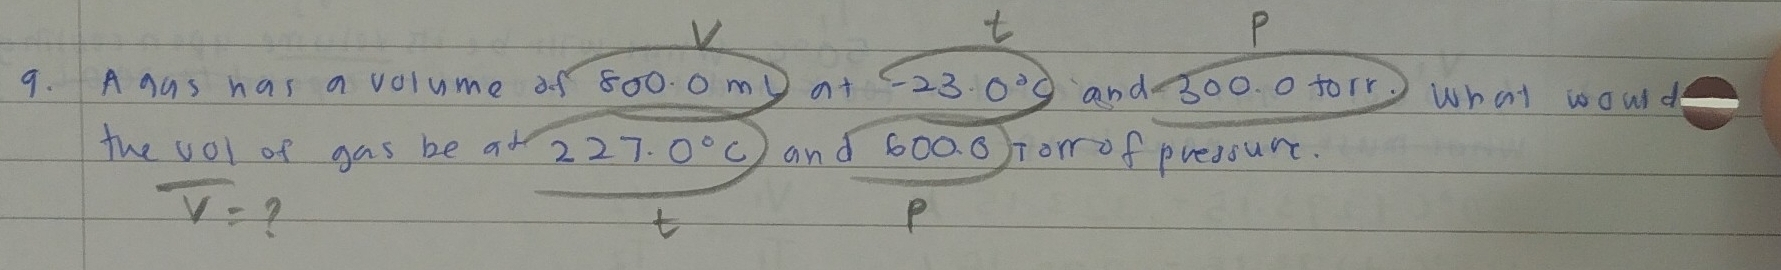 V t P
9. A gas has a volume of 800.0 mL at -23.0°C and 300.0 torr. What would
the vol of gas be at 227.0°C and 600.0 Torr of pressure.
V = ? t P